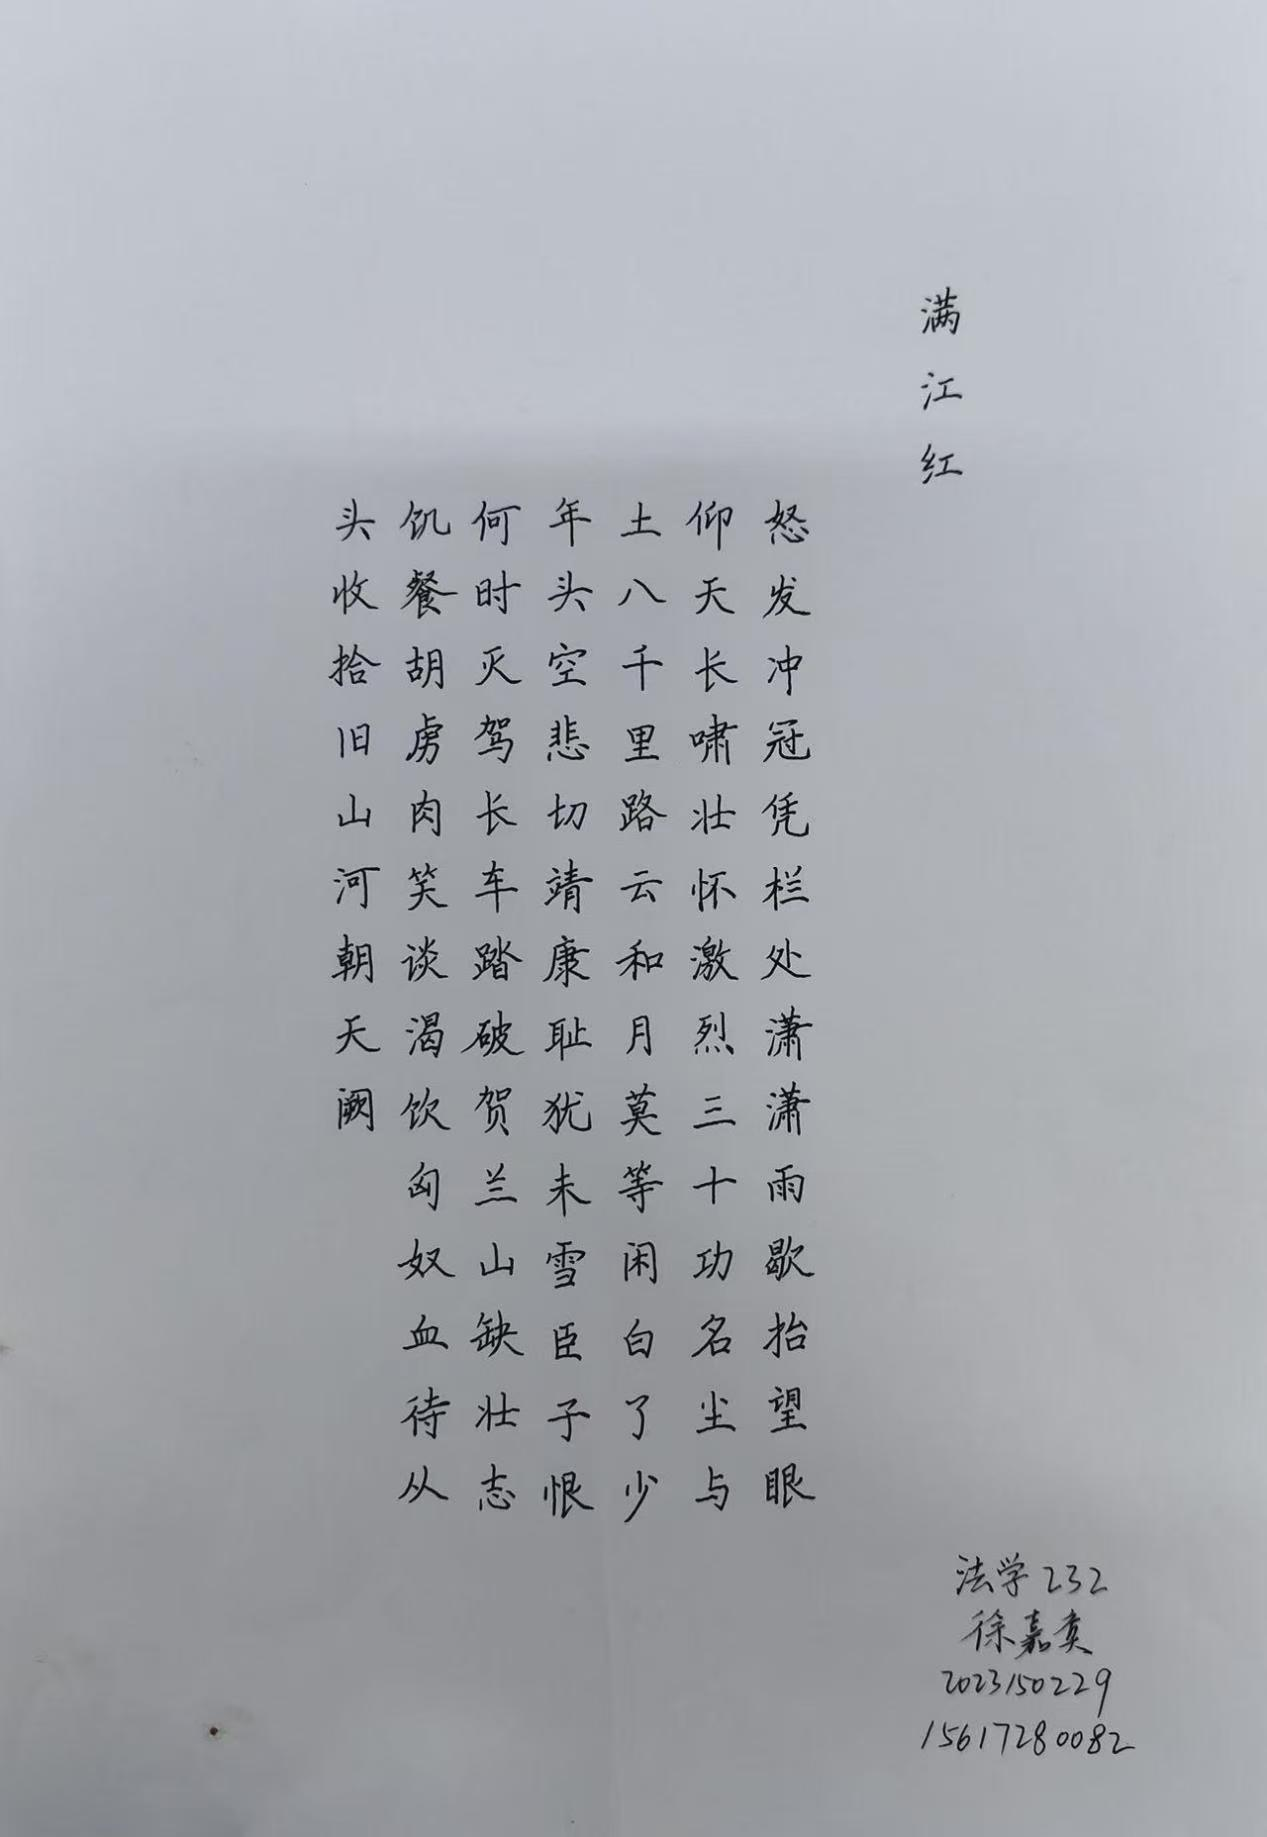 满江红
怒发冲冠凭栏处潇潇雨歇抬望眼
仰天长啸壮怀激烈三十功名尘与
土八千里路云和月莫等闲白了少
年头空悲切靖康耻犹未雪臣子恨
何时灭驾长车踏破贺兰山缺壮志
饥餐胡虏肉笑谈渴饮匈奴血待从
头收拾旧山河朝天阙
法学232
徐嘉
2023150229
15617280082